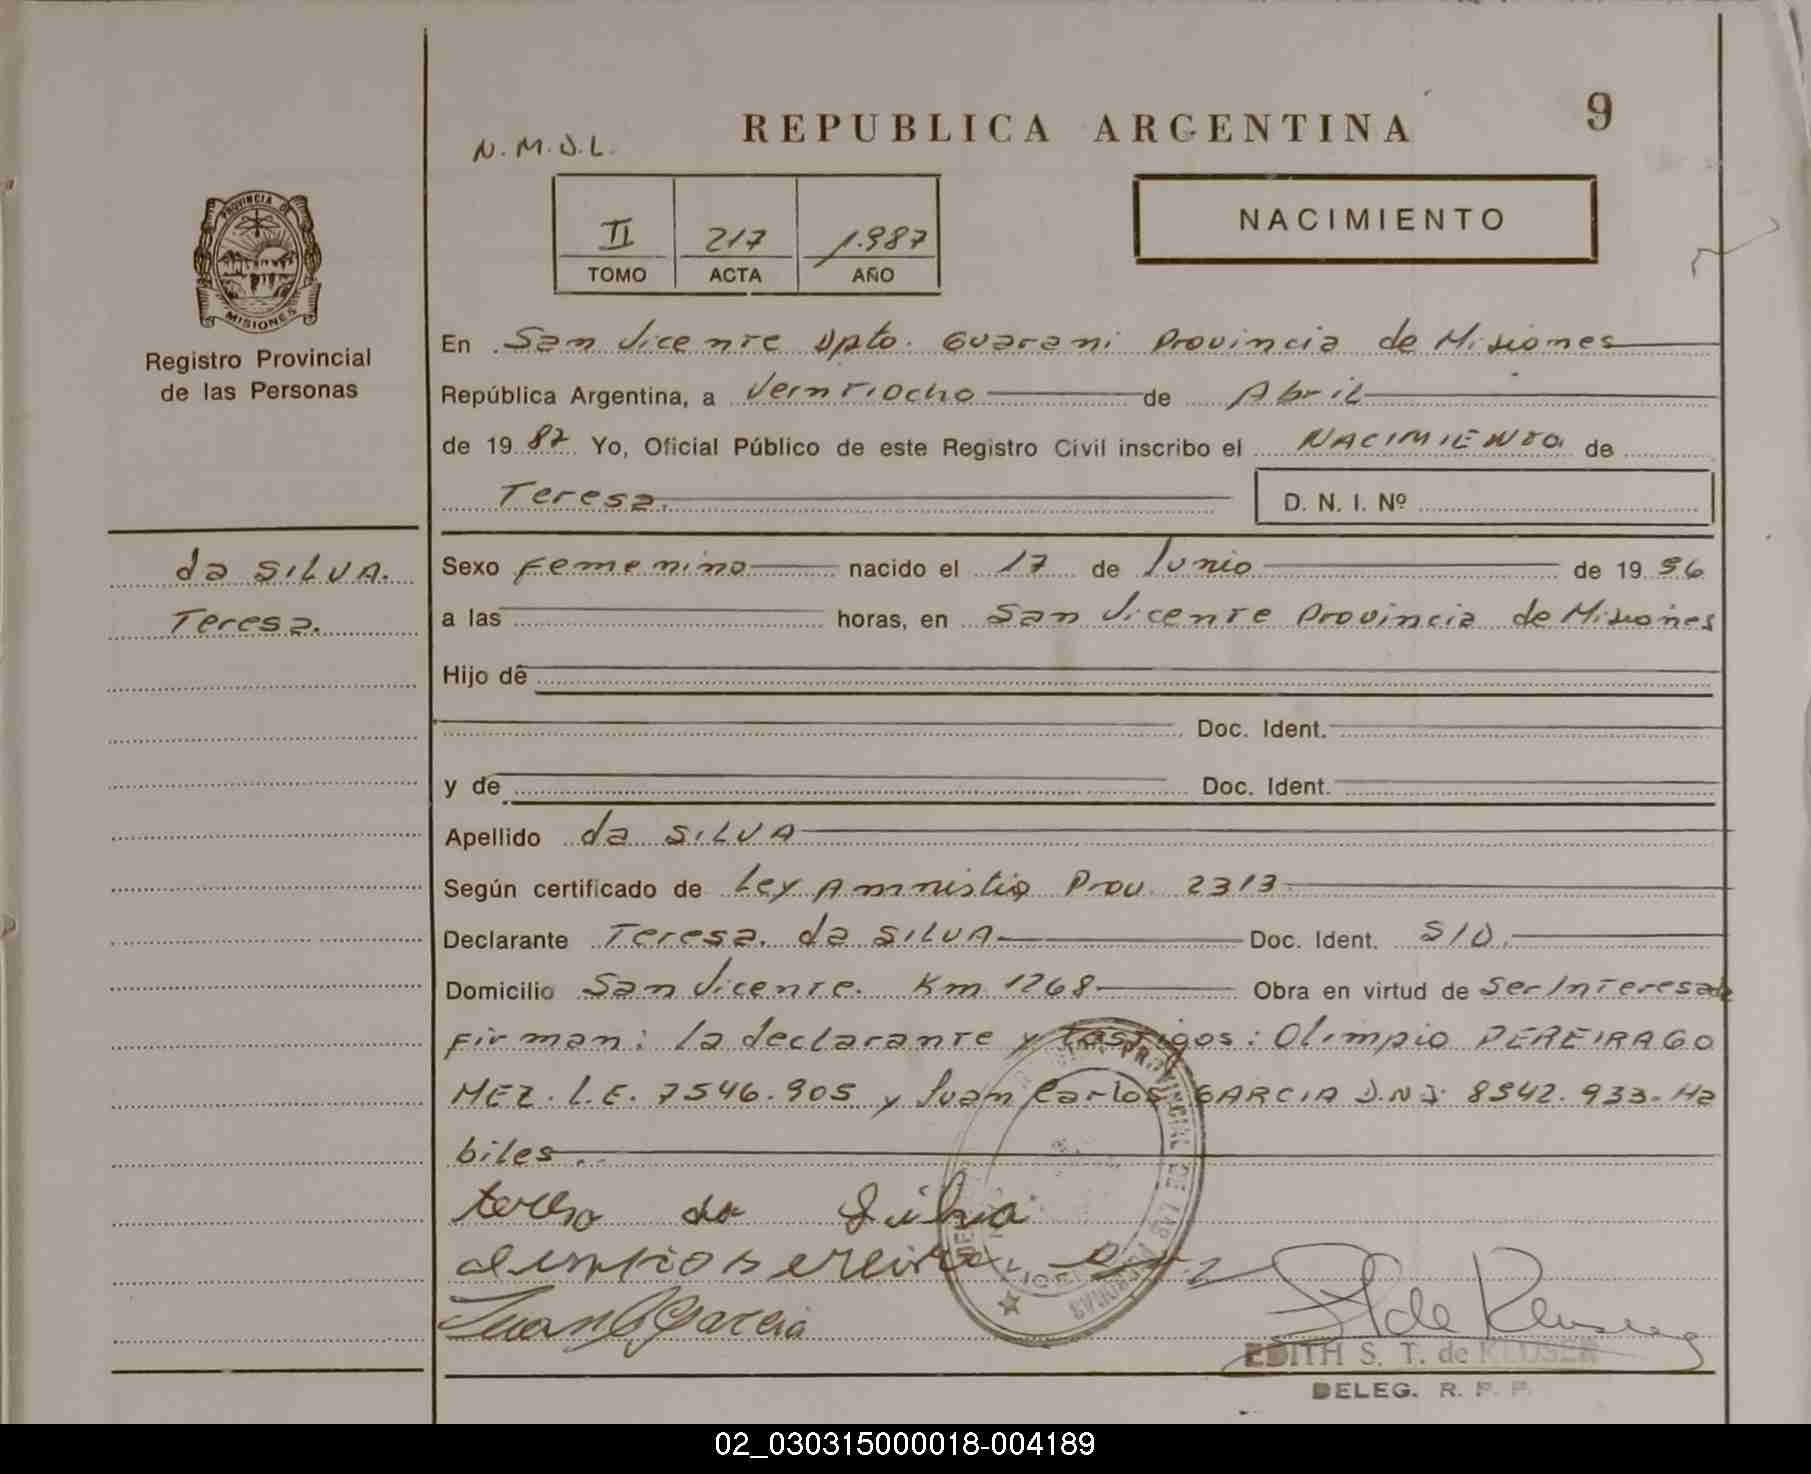 REPUBLICA ARGENTINA
9
N.M.J.L.
NACIMIENTO
II 217 1.987
TOMO ACTA AÑO
PROVINCIA DE
MISIONES
Registro Provincial
de las Personas
En San Vicente Dpto. Guarani Provincia de Misiones
República Argentina, a Veintiocho de Abril
de 19 87 Yo, Oficial Público de este Registro Civil inscribo el NACIMIENTO de
Teresa. D. N. I. Nº
da SILVA.
Teresa.
Sexo Femenino nacido el 17 de Junio de 19 56
a las horas, en San Vicente Provincia de Misiones
Hijo de
Doc. Ident.
y de Doc. Ident.
Apellido da SILVA
Según certificado de Ley Amnistia Prov. 2313
Declarante Teresa. da SILVA Doc. Ident. S/D.
Domicilio San Vicente. Km 1268 Obra en virtud de Ser Interesada
Firman: la declarante y testigos: Olimpio PEREIRA GO
MEZ. L.E. 7546.905 y Juan Carlos GARCIA D.N.I. 8542.933. Ha
biles..
teresa da Silva
olimpio Pereira
Juan C Garcia
EDITH S. T. de KLUSER
DELEG. R. P. P.
02_030315000018-004189